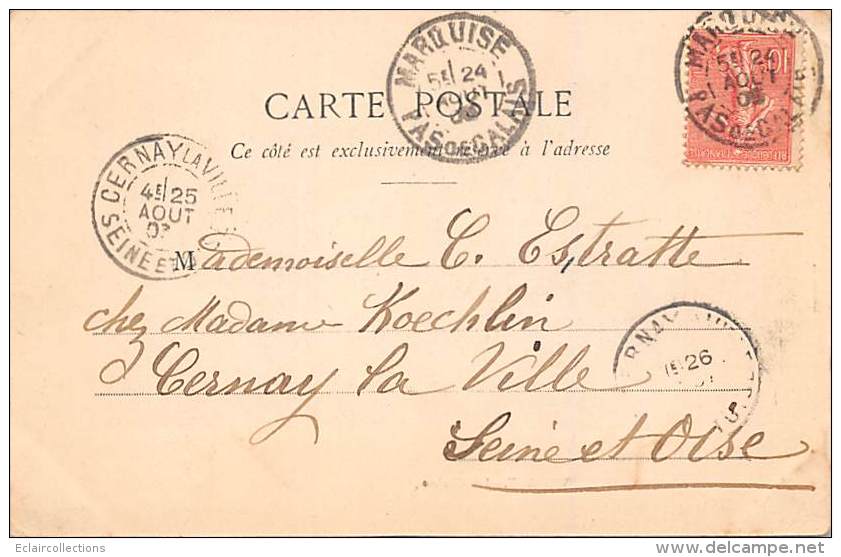 MARQUISE
5E 24
AOUT
03
PAS DE CALAIS
MARQUISE
5E 24
AOUT
03
PAS DE CALAIS
10
CARTE POSTALE
Ce côté est exclusivement réservé à l'adresse
CERNAY LA VILLE
4E 25
AOUT
03
SEINE ET
Mademoiselle C. Estratte
chez Madame Koechlin
Cernay la Ville
Seine et Oise
1E 26
Eclaircollections
www.delcampe.net